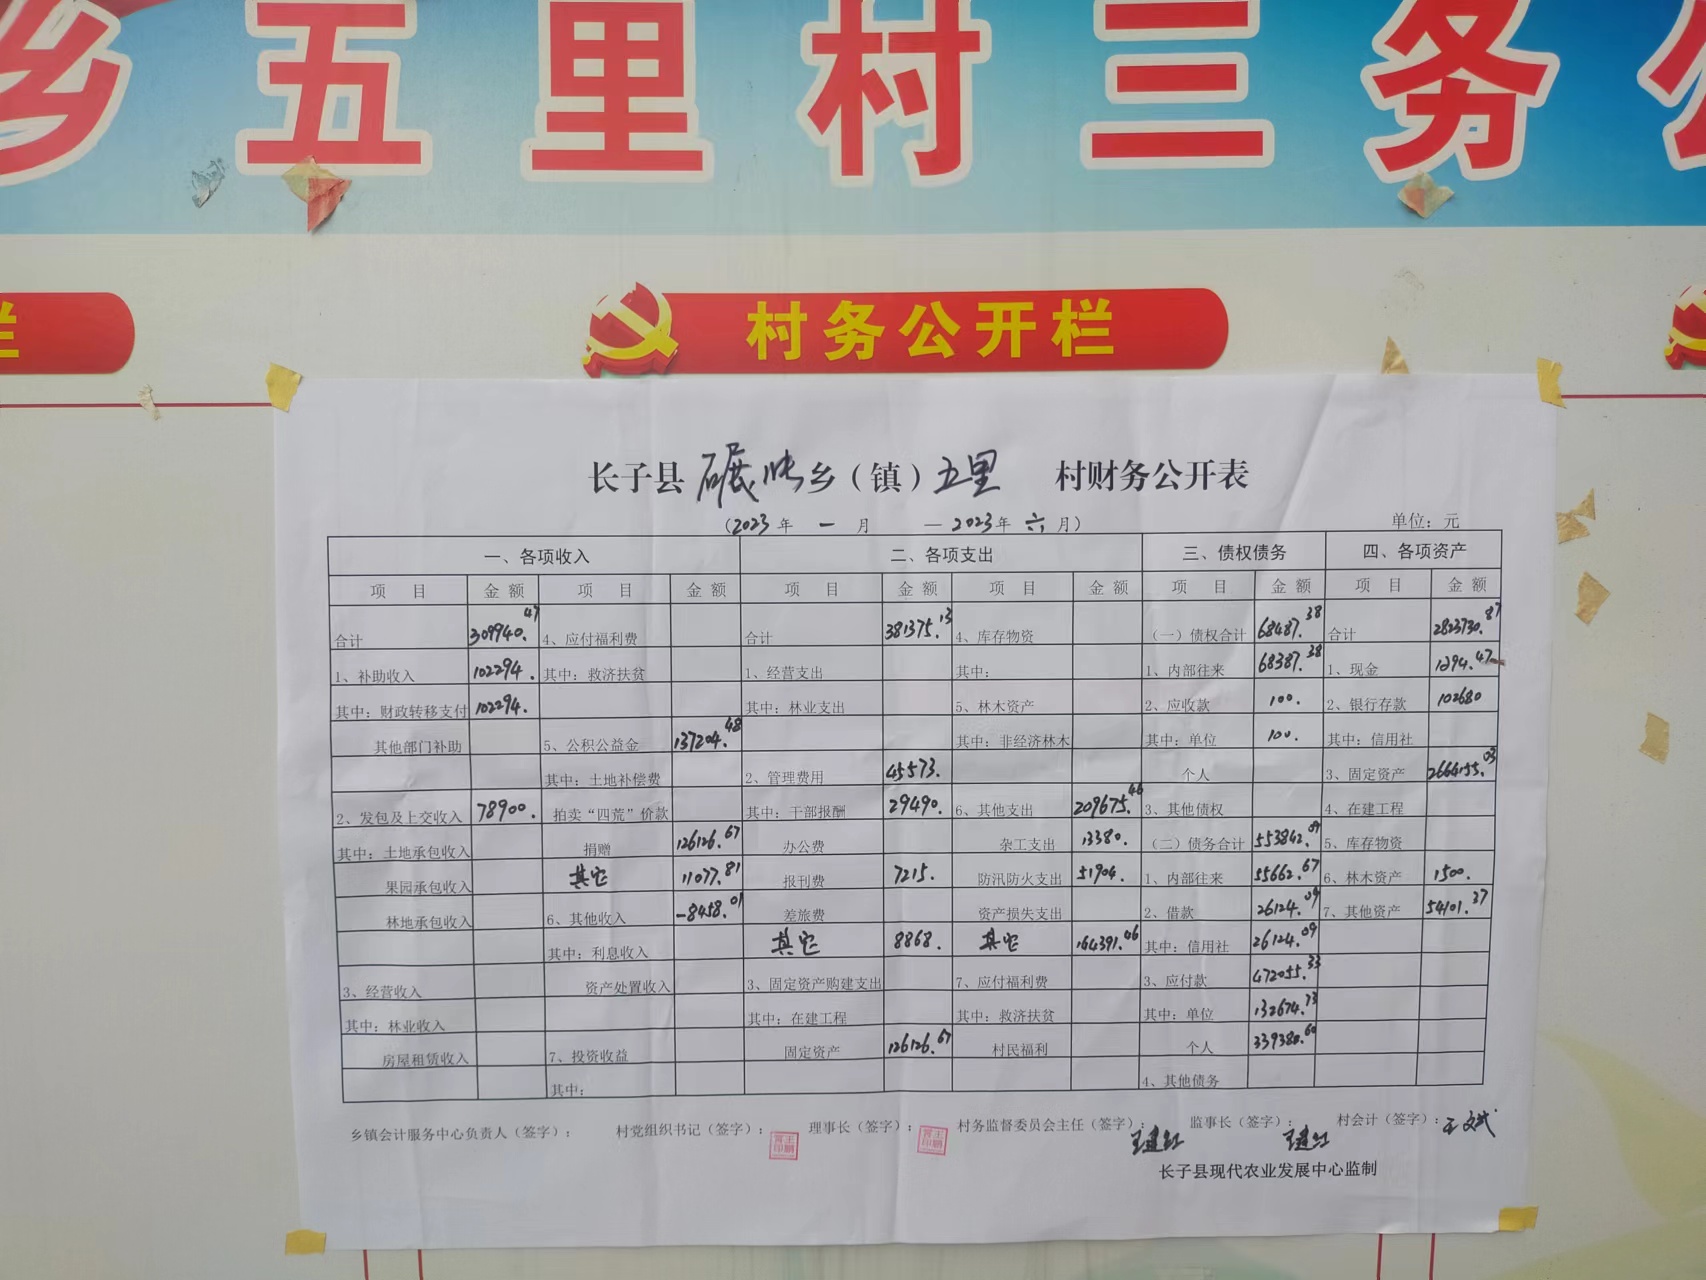 乡五里村三务公
栏
村务公开栏
长子县 碾张 乡（镇）五里 村财务公开表
（2023 年 一 月 — 2023 年 六 月）
单位：元
一、各项收入 二、各项支出 三、债权债务 四、各项资产
项 目 金 额 项 目 金 额 项 目 金 额 项 目 金 额 项 目 金 额 项 目 金 额
合计 309940.47 4、应付福利费 合计 381375.13 4、库存物资 （一）债权合计 68487.38 合计 2823730.87
1、补助收入 102294. 其中：救济扶贫 1、经营支出 其中： 1、内部往来 68387.38 1、现金 1294.47
其中：财政转移支付 102294. 其中：林业支出 5、林木资产 2、应收款 100. 2、银行存款 102680
其他部门补助 5、公积公益金 137204.48 其中：非经济林木 其中：单位 100. 其中：信用社
其中：土地补偿费 2、管理费用 45573. 个人 3、固定资产 2664155.03
2、发包及上交收入 78900. 拍卖“四荒”价款 其中：干部报酬 29490. 6、其他支出 209675.46 3、其他债权 4、在建工程
其中：土地承包收入 捐赠 126126.67 办公费 杂工支出 13380. （二）债务合计 553842.09 5、库存物资
果园承包收入 其它 11077.81 报刊费 7215. 防汛防火支出 51904. 1、内部往来 55662.67 6、林木资产 1500.
林地承包收入 6、其他收入 -8458.01 差旅费 资产损失支出 2、借款 26124.09 7、其他资产 54101.37
其中：利息收入 其它 8868. 其它 164391.46 其中：信用社 26124.09
3、经营收入 资产处置收入 3、固定资产购建支出 7、应付福利费 3、应付款 472055.33
其中：林业收入 其中：在建工程 其中：救济扶贫 其中：单位 132674.73
房屋租赁收入 7、投资收益 固定资产 126126.67 村民福利 个人 339380.60
其中： 4、其他债务
乡镇会计服务中心负责人（签字）： 村党组织书记（签字）： 理事长（签字）： 村务监督委员会主任（签字）： 监事长（签字）： 村会计（签字）：王文斌
长子县现代农业发展中心监制